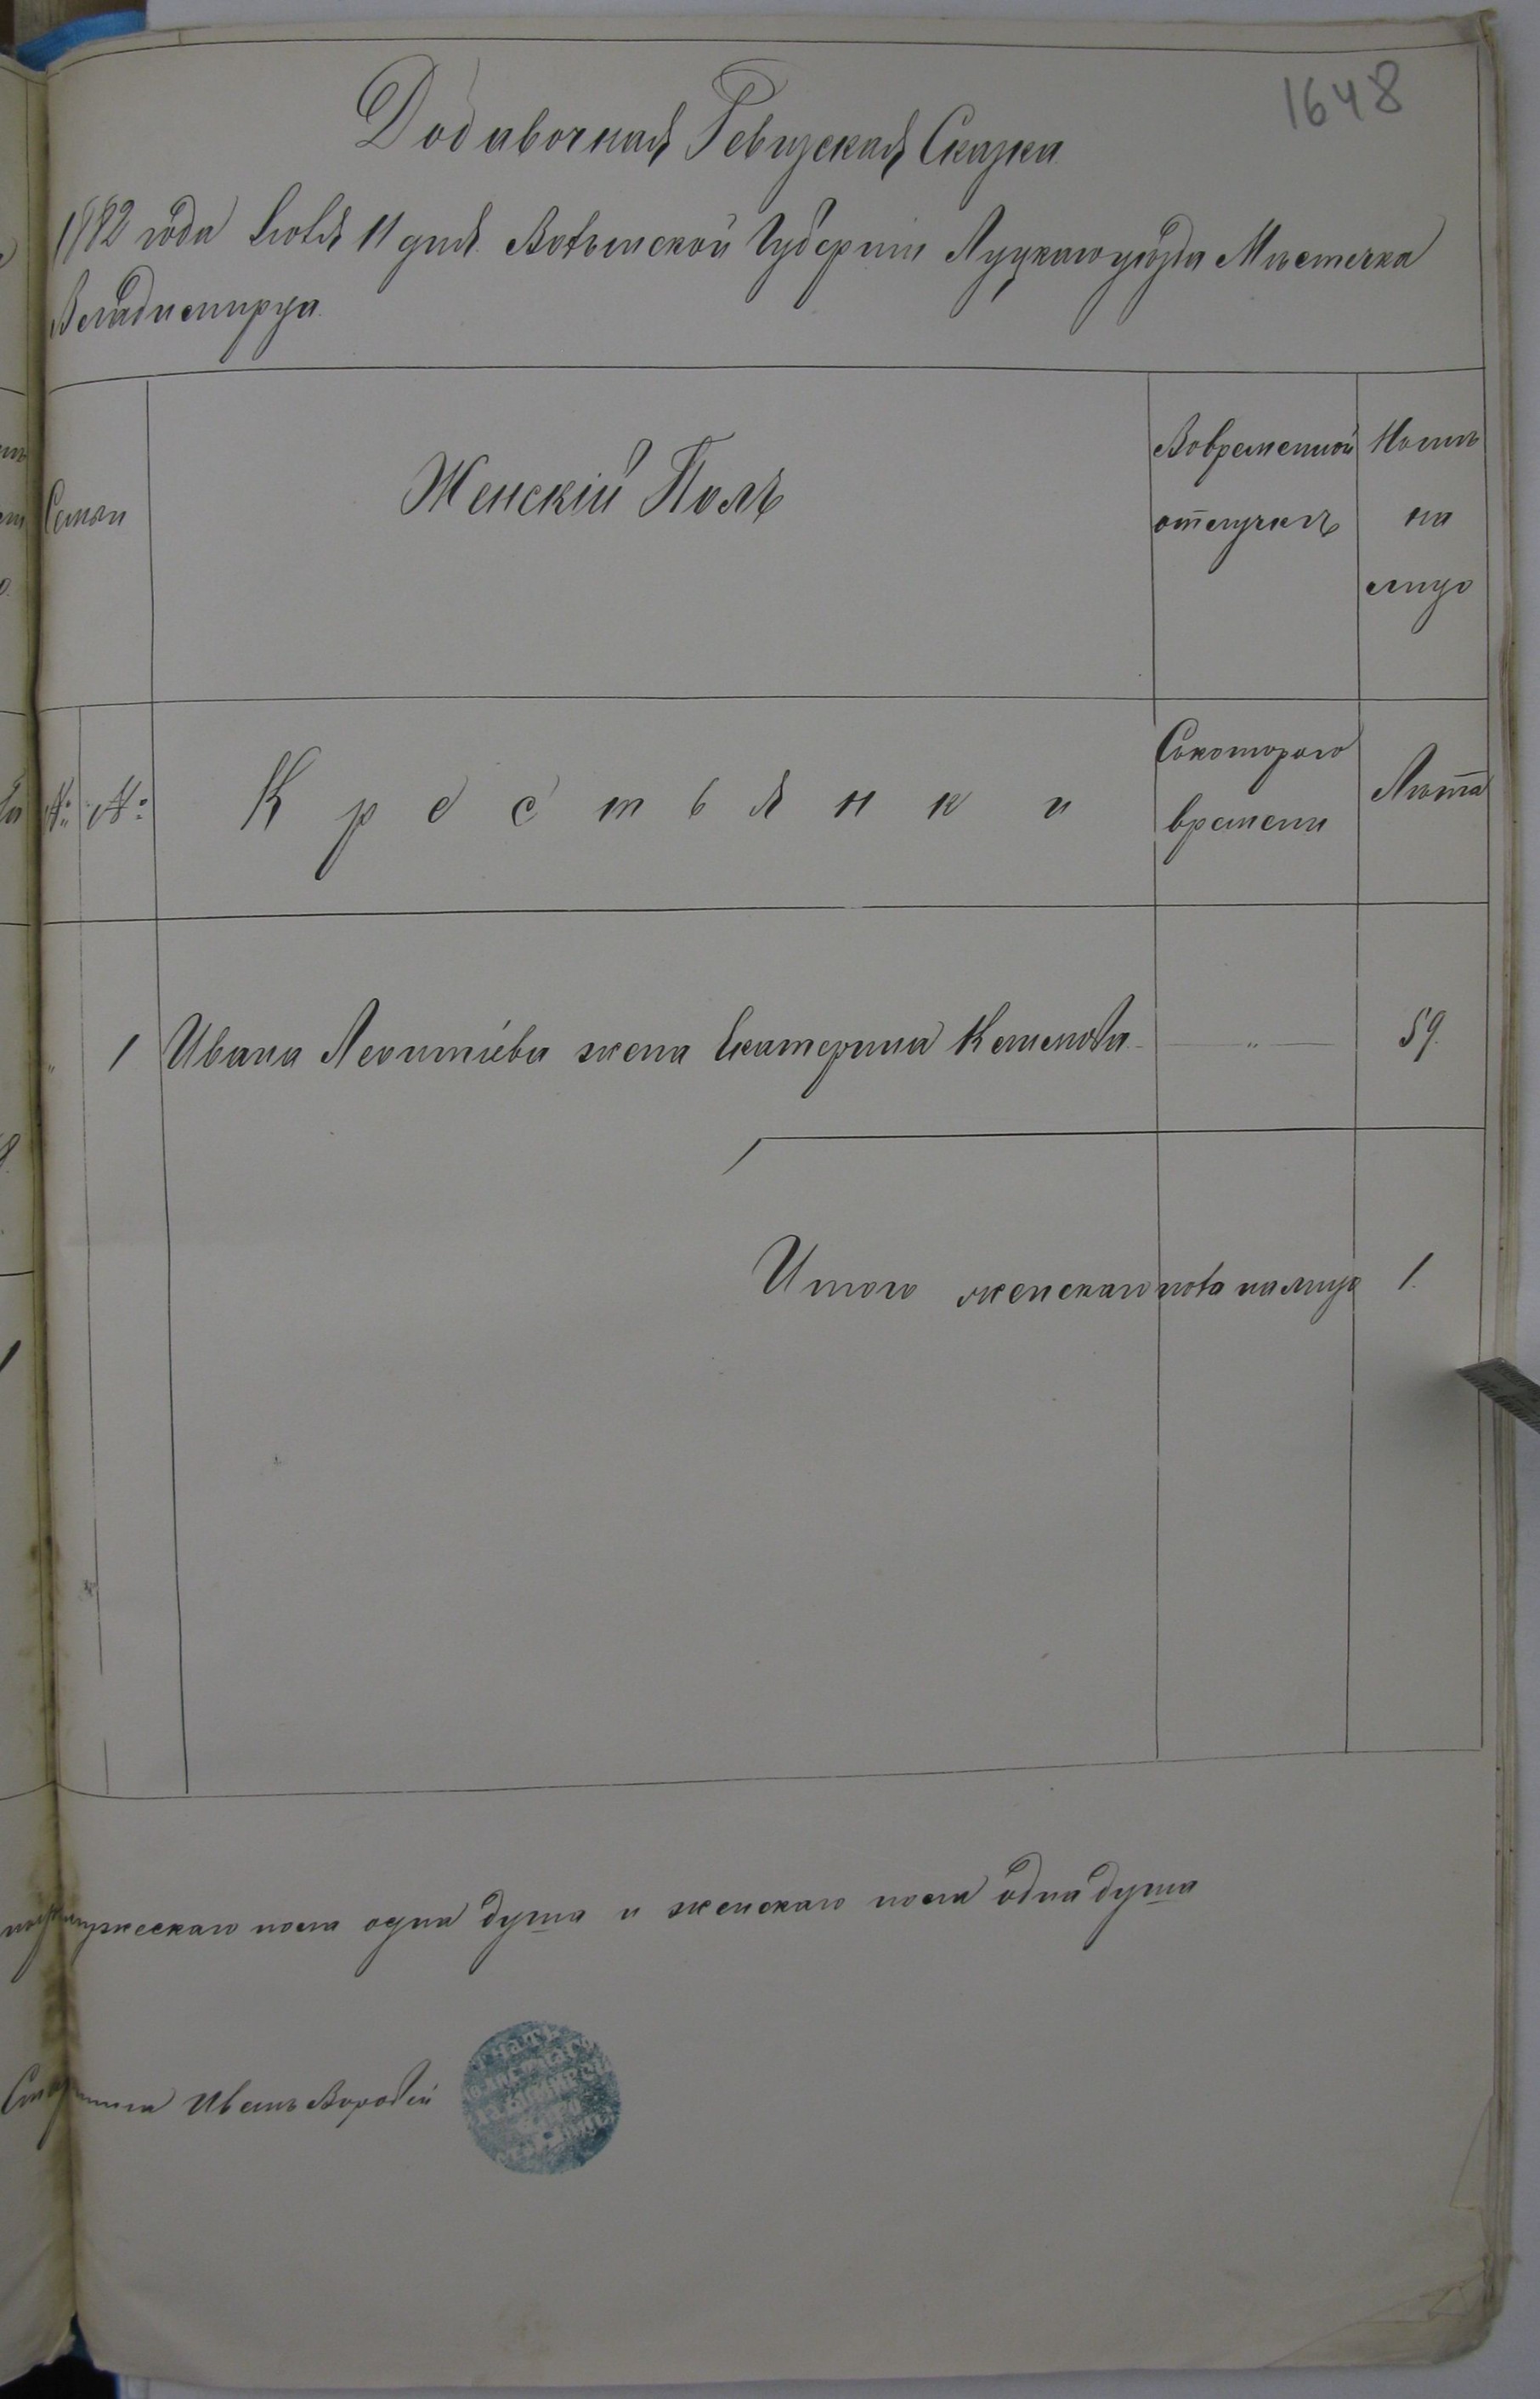 1648
Добавочная Ревизская Сказка
года Іюля 11 дня Волынской Губерніи Луцкаго уѣзда Мѣстечка
Владимирца
Семьи
Женскій Полъ
Вовременной
отлучкѣ
Нолич
на
лицо
№: №:
Крестьянки
Скотораго
времени
Лѣта
1 Ивана Леонтіева жена Екатерина 59
Итого женскаго пола на лицо 1.
мужескаго пола одна душа и женскаго пола одна душа
Иванъ